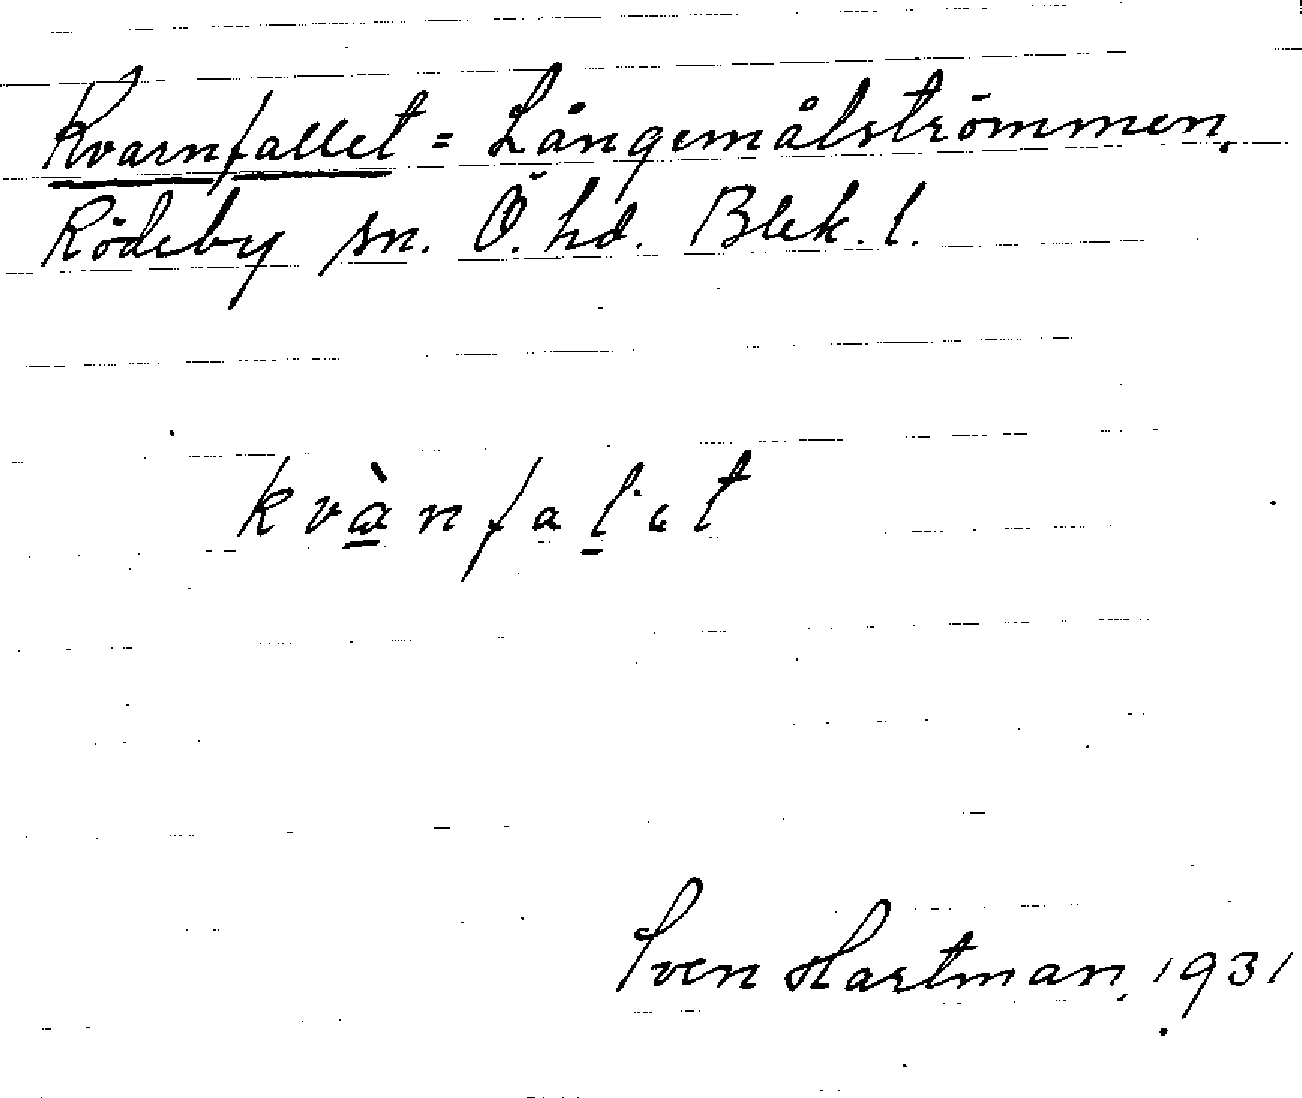 Kvarnfallet = Långemålströmmen.
Rödeby sn. Ö. hd. Blek. l.
kvànfalet
Sven Hartman, 1931